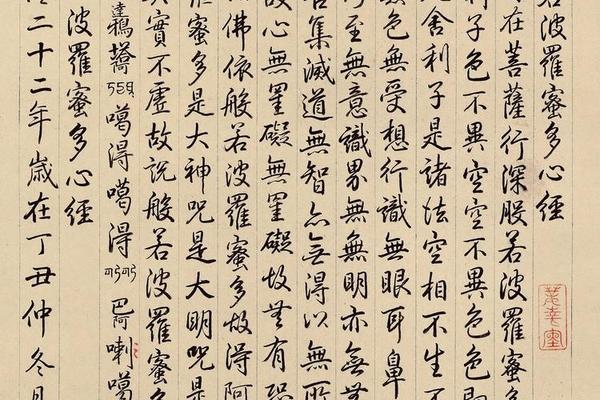 若波羅蜜多心經
在菩薩行深般若波羅蜜多
利子色不異空空不異色色即
舍利子是諸法空相不生不
色無受想行識無眼耳鼻
至無意識界無無明亦無無
苦集滅道無智亦無得以無所
故心無罣礙無罣礙故無有恐
佛依般若波羅蜜多故得阿
蜜多是大神咒是大明咒是
實不虛故說般若波羅蜜多
達鴉 噶得噶得 巴阿喇噶
波羅蜜多心經
二十二年歲在丁丑仲冬月